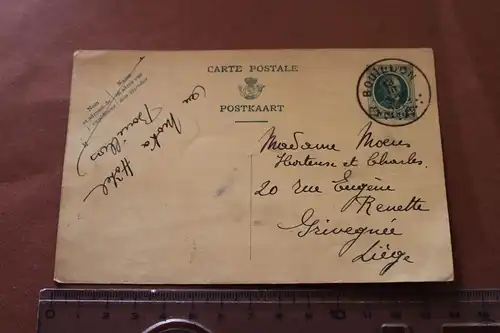 CARTE POSTALE
POSTKAART
BOUILLON
Nom
Naam
Bouillon
Hôtel
Madame Moens
Hortense et Charles.
20 rue Eugène
Renette
Grivegnée
Liège